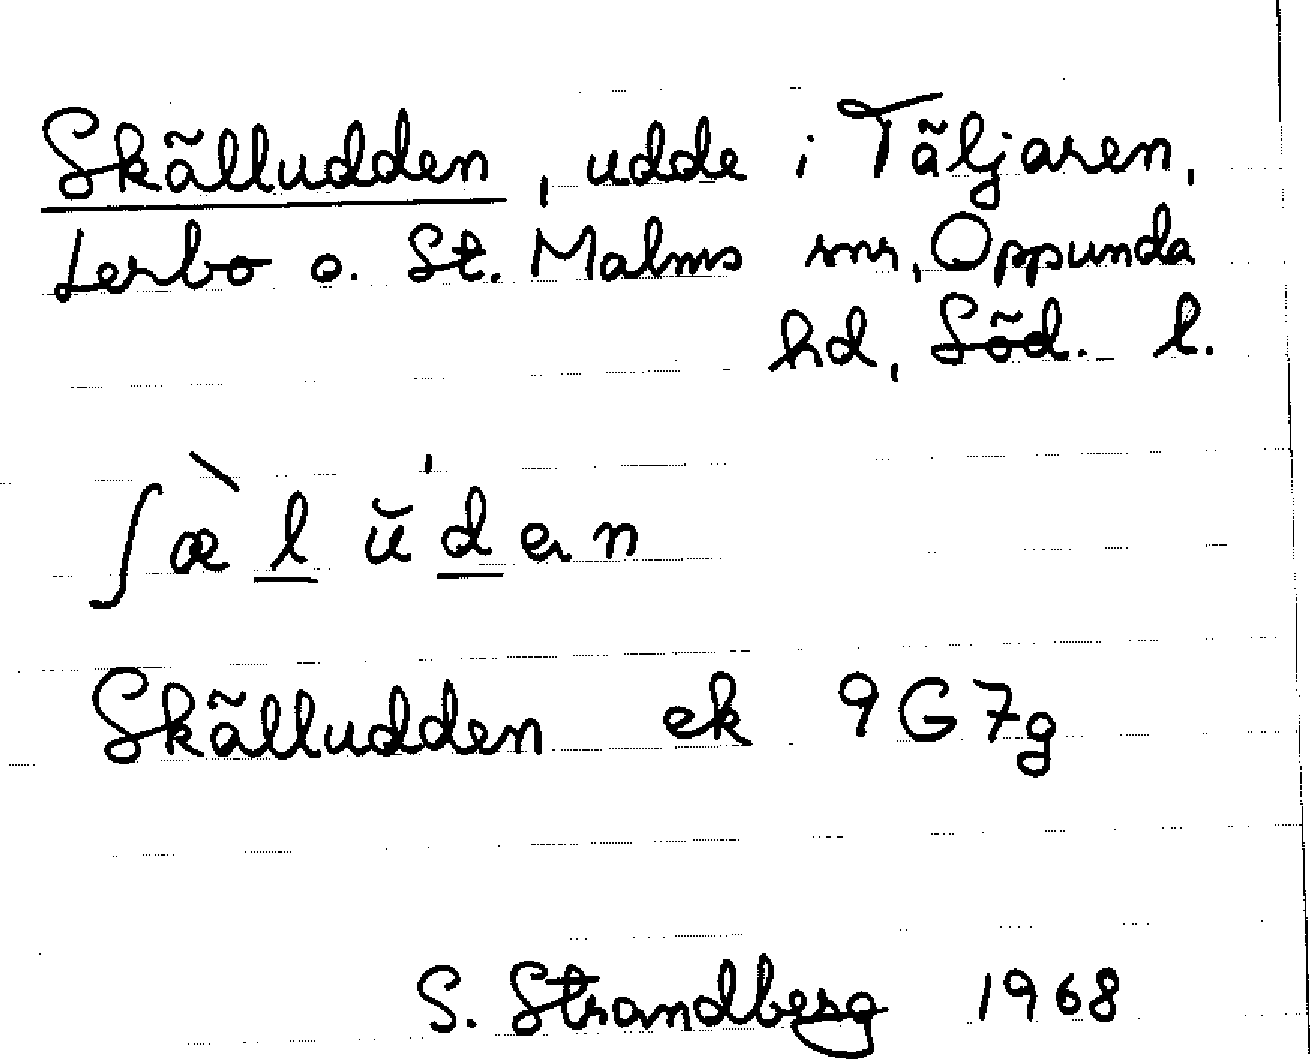 Skälludden, udde i Täljaren,
Lerbo o. St. Malms snr, Oppunda
hd, Söd. l.
ʃæ̀l ŭ'den
Skälludden ek 9G7g
S. Strandberg 1968